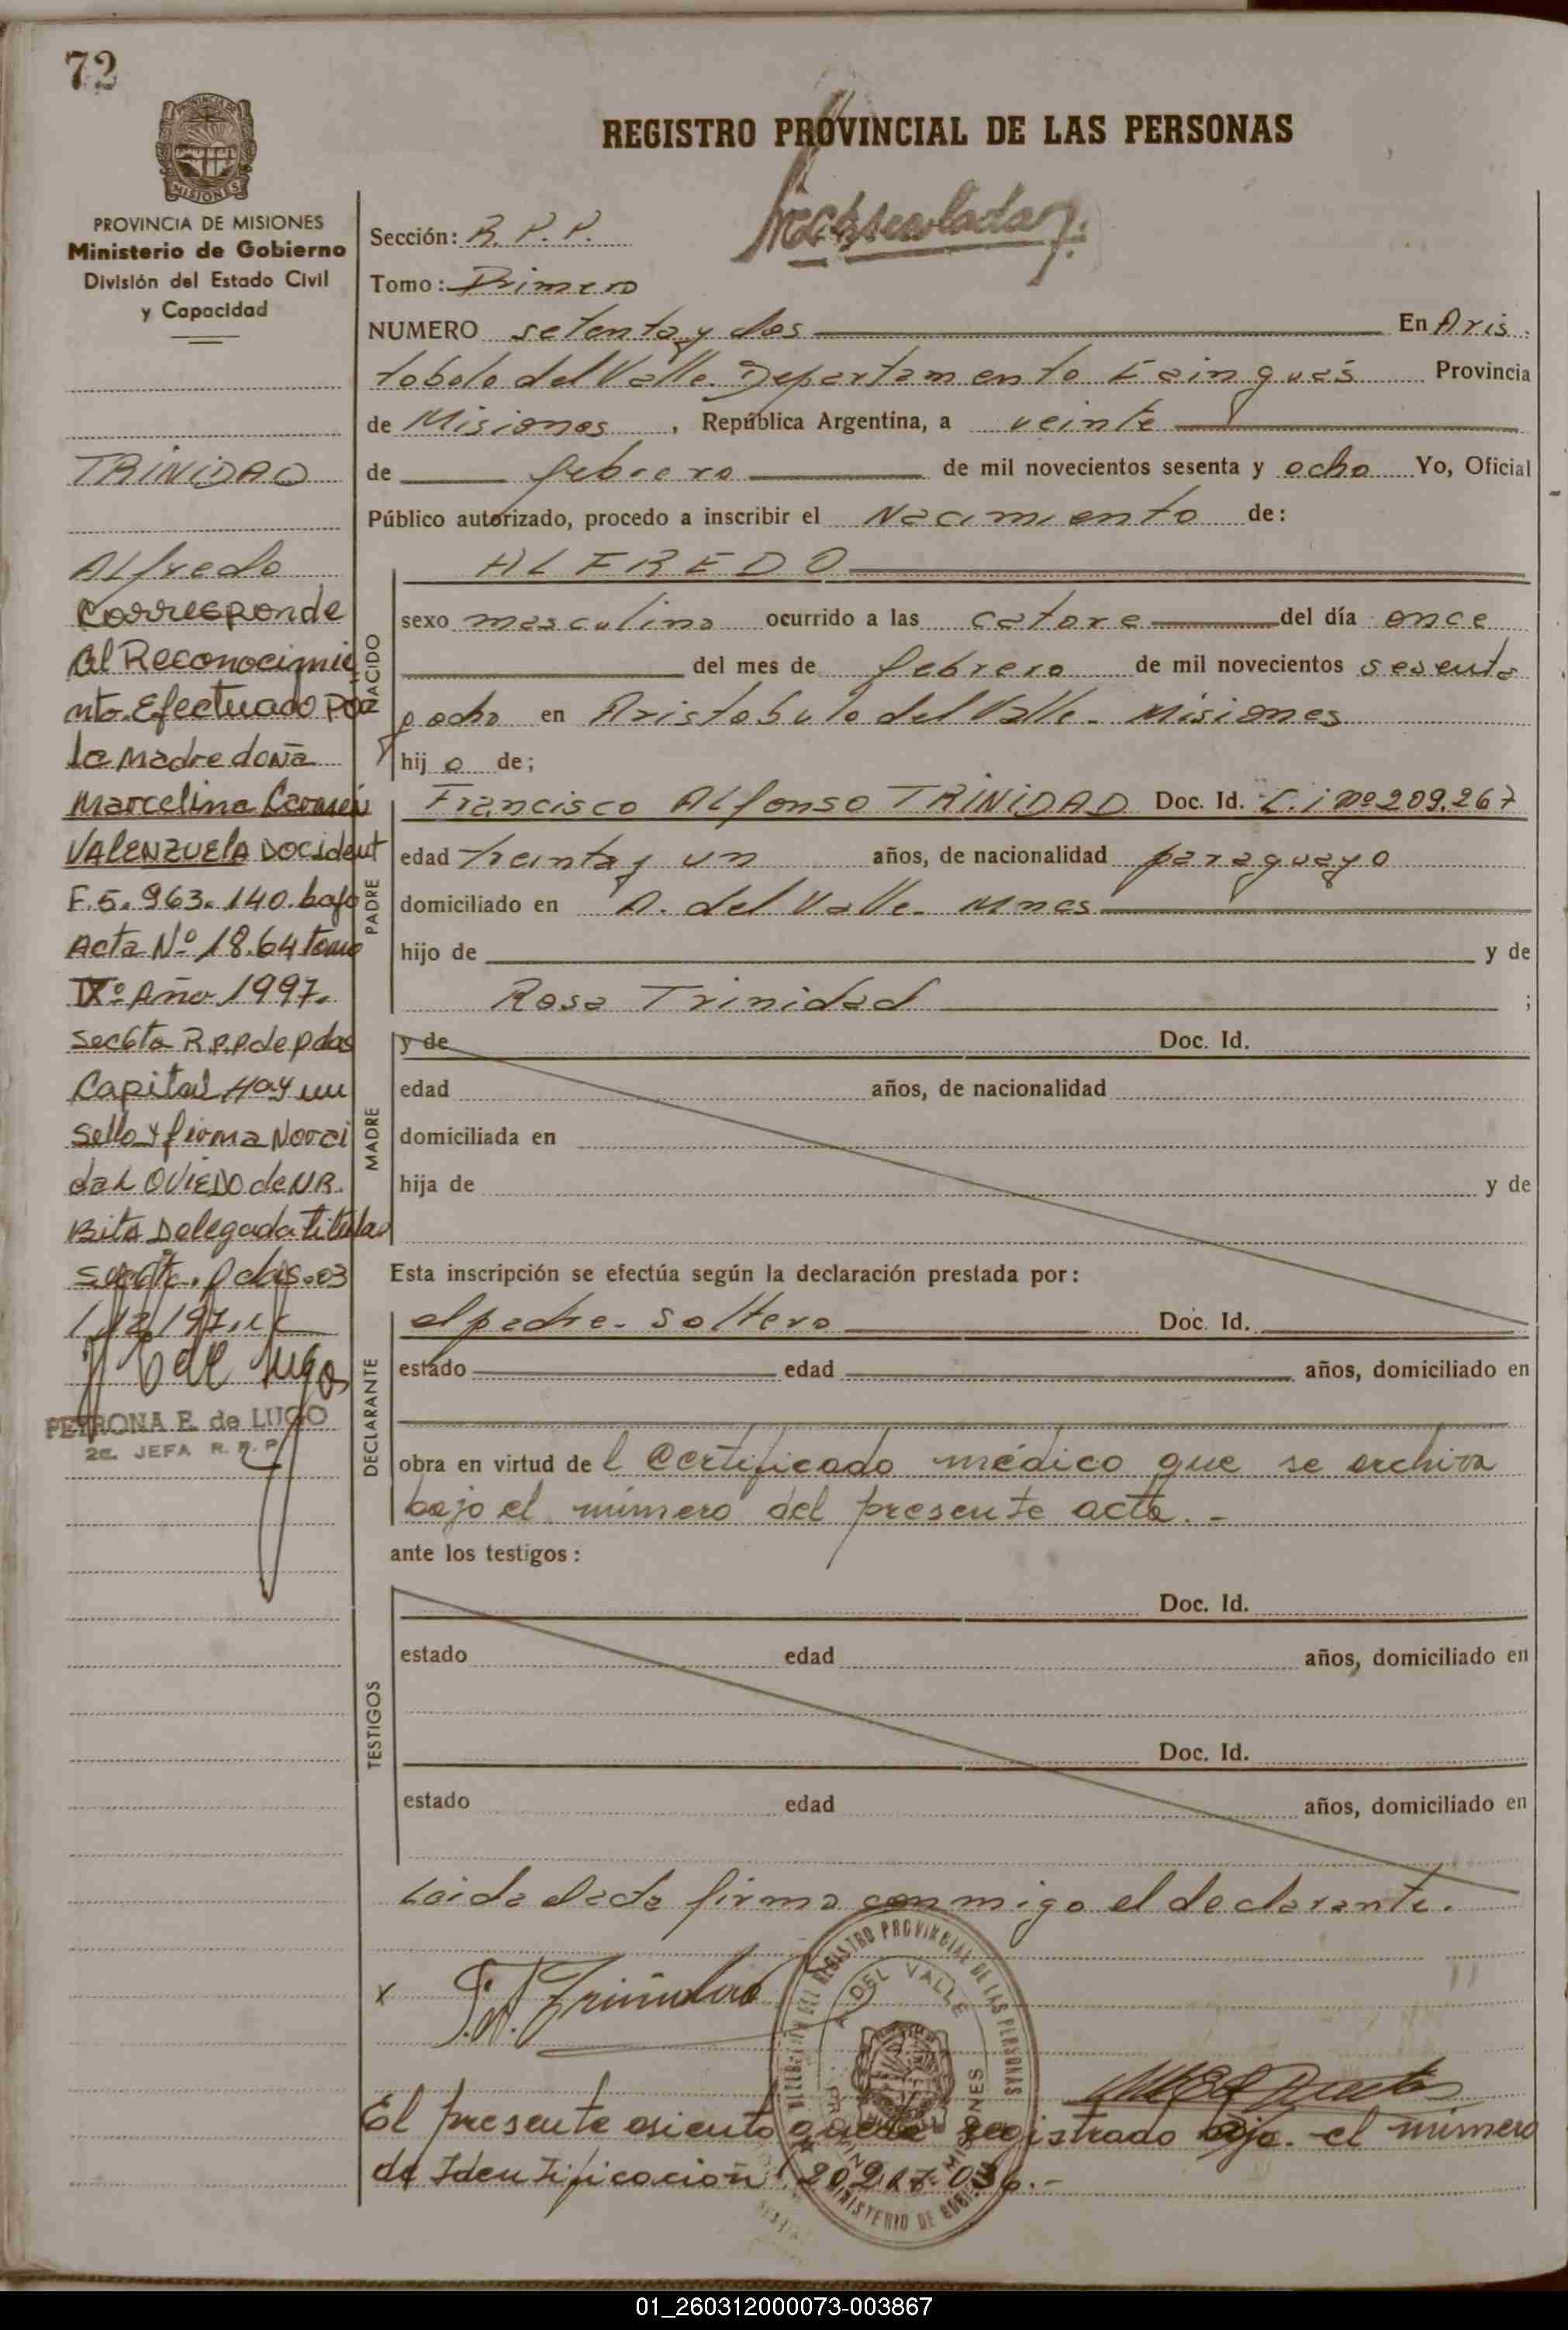 72
REGISTRO PROVINCIAL DE LAS PERSONAS
PROVINCIA DE MISIONES
Ministerio de Gobierno
División del Estado Civil
y Capacidad
Sección: R. P. P.
Tomo: Primero
NUMERO setenta y dos En Aris
tobulo del Valle. Departamento Cainguás Provincia
de Misiones, República Argentina, a veinte
de febrero de mil novecientos sesenta y ocho Yo, Oficial
Público autorizado, procedo a inscribir el Nacimiento de:
ALFREDO
NACIDO
sexo masculino ocurrido a las catorce del día once
del mes de febrero de mil novecientos sesenta
y ocho en Aristobulo del Valle. Misiones
hijo de;
PADRE
Francisco Alfonso TRINIDAD Doc. Id. C. i nº 209.267
edad treinta y un años, de nacionalidad paraguayo
domiciliado en A. del Valle. Mnes
hijo de y de
Rosa Trinidad ;
MADRE
y de Doc. Id.
edad años, de nacionalidad
domiciliada en
hija de y de
Esta inscripción se efectúa según la declaración prestada por:
DECLARANTE
el padre. soltero Doc. Id.
estado edad años, domiciliado en
obra en virtud del Certificado médico que se archiva
bajo el número del presente acta.-
ante los testigos:
TESTIGOS
Doc. Id.
estado edad años, domiciliado en
Doc. Id.
estado edad años, domiciliado en
Leida el acta firma conmigo el declarante.
x
El presente asiento queda registrado bajo el número
de Identificación
TRINIDAD
Alfredo
Corresponde
al Reconocimie
nto Efectuado por
la Madre doña
Marcelina Carmen
VALENZUELA Doc ident
F. 5.963.140. bajo
Acta Nº 18.64 tomo
IXº Año 1997.
R.P.P de Pdas
Capital Hay un
Sello y firma
OVIEDO de
Delegada titular
Pdas. 03
/12/97.
PETRONA E. de LUGO
2a. JEFA R. P. P
DELEGACION DEL REGISTRO PROVINCIAL DE LAS PERSONAS
A. DEL VALLE
MISIONES
MINISTERIO DE GOBIERNO
01_260312000073-003867